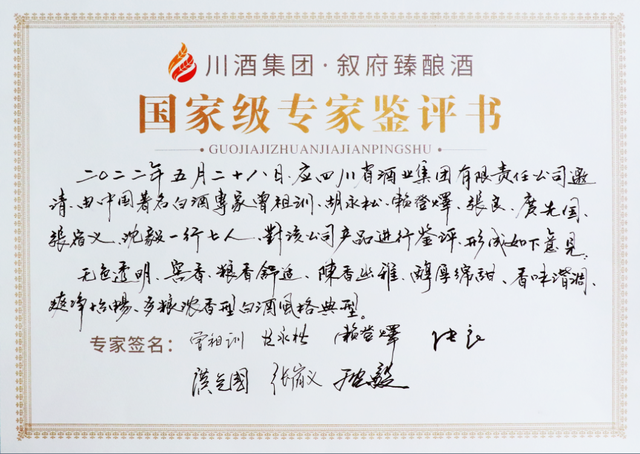 川酒集团·叙府臻酿酒
国家级专家鉴评书
GUOJIAJIZHUANJIAJIANPINGSHU
二〇二二年五月二十八日,应四川省酒业集团有限责任公司邀
请,由中国著名白酒专家曾祖训、胡永松、赖登燡、张良、庹先国、
张宿义、沈毅一行七人,對该公司产品进行鉴评,形成如下意見:
无色透明、窖香、粮香舒适、陳香幽雅、醇厚绵甜、香味谐调、
爽净怡暢、多粮浓香型白酒風格典型。
专家签名: 曾祖训 胡永松 赖登燡 张良
庹先國 张宿义 沈毅